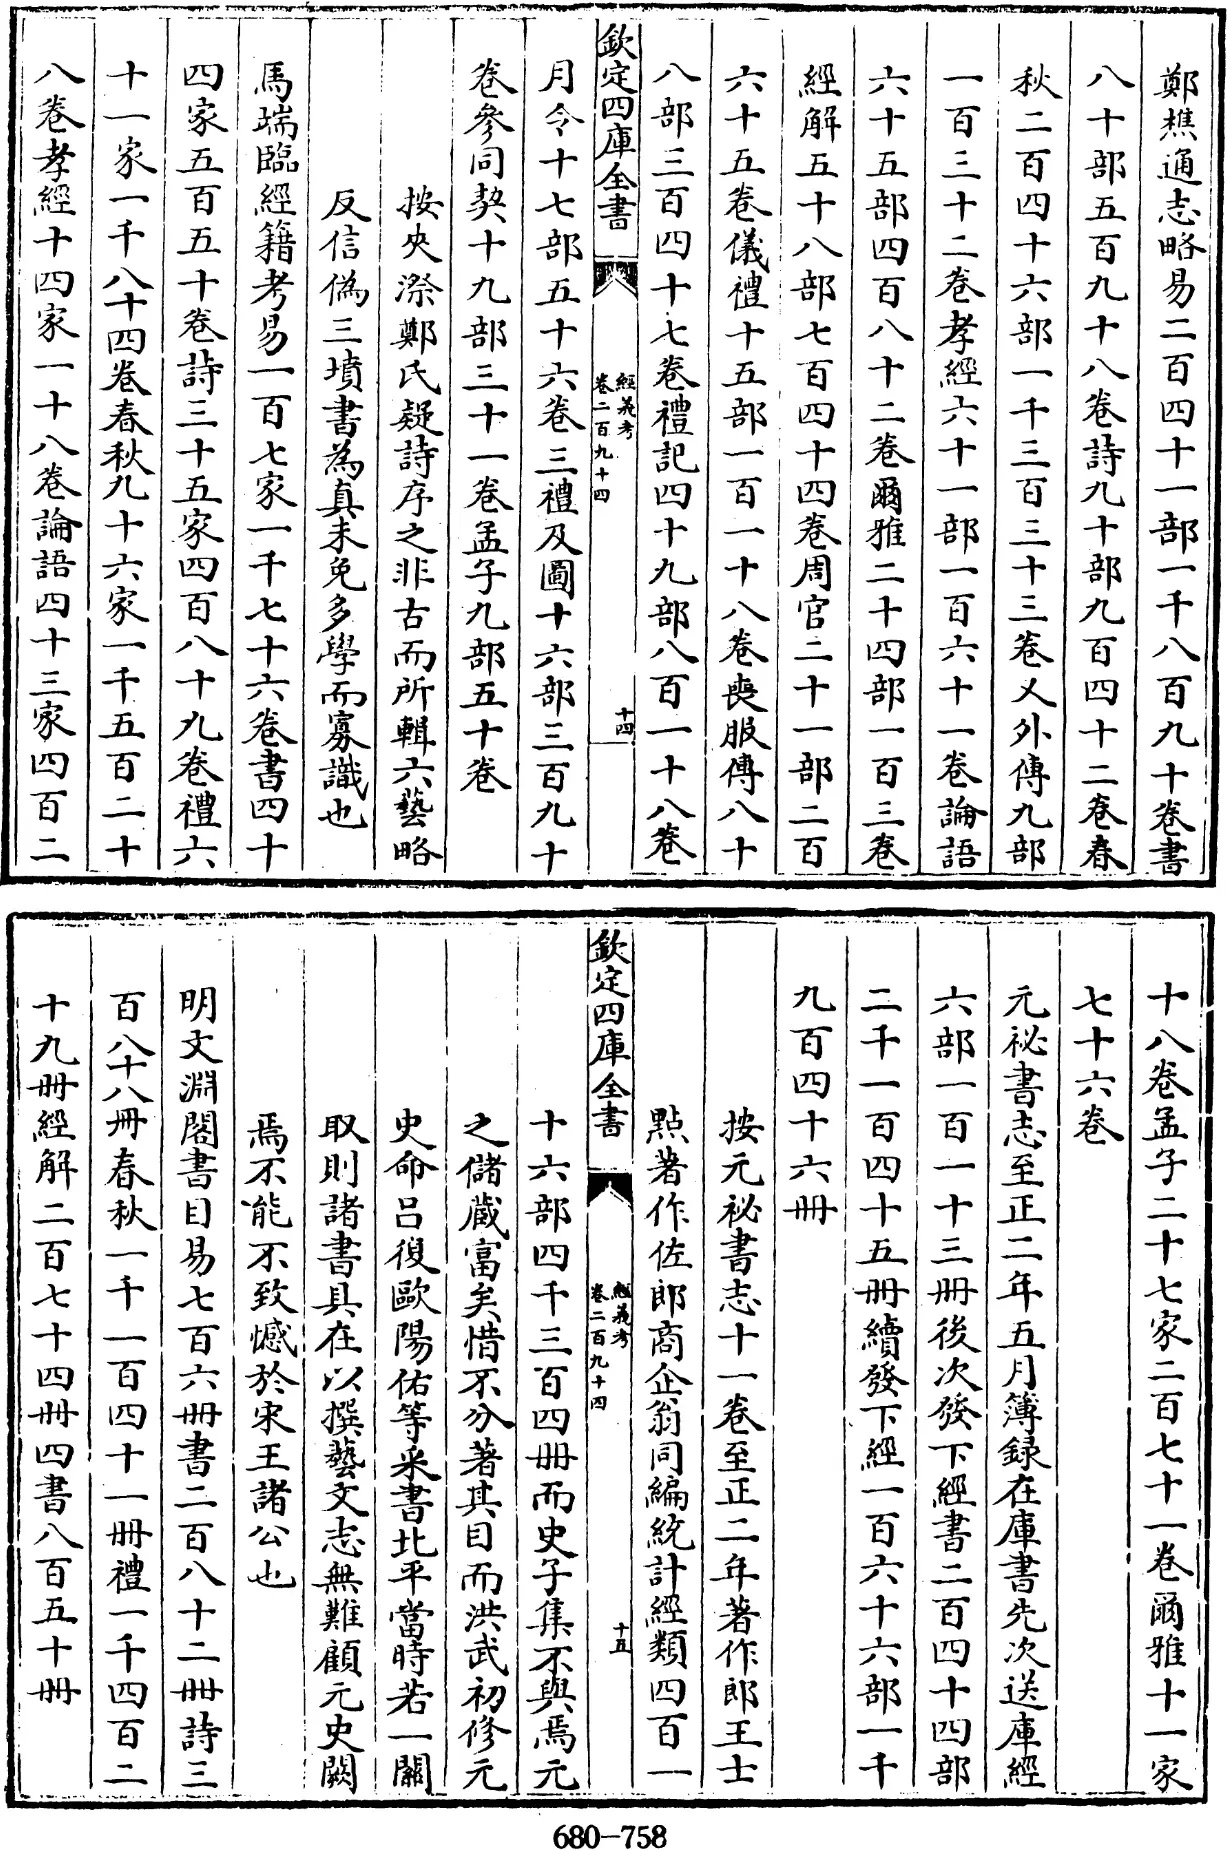 鄭樵通志略易二百四十一部一千八百九十卷書
八十部五百九十八卷詩九十部九百四十二卷春
秋二百四十六部一千三百三十三卷乂外傳九部
一百三十二卷孝經六十一部一百六十一卷論語
六十五部四百八十二卷爾雅二十四部一百三卷
經解五十八部七百四十四卷周官二十一部二百
六十五卷儀禮十五部一百一十八卷喪服傳八十
八部三百四十七卷禮記四十九部八百一十八卷
欽定四庫全書
經義考
卷二百九十四
十四
月令十七部五十六卷三禮及圖十六部三百九十
卷參同契十九部三十一卷孟子九部五十卷
按夾漈鄭氏疑詩序之非古而所輯六藝略
反信偽三墳書為真未免多學而寡識也
馬端臨經籍考易一百七家一千七十六卷書四十
四家五百五十卷詩三十五家四百八十九卷禮六
十一家一千八十四卷春秋九十六家一千五百二十
八卷孝經十四家一十八卷論語四十三家四百二
十八卷孟子二十七家二百七十一卷爾雅十一家
七十六卷
元祕書志至正二年五月簿録在庫書先次送庫經
六部一百一十三冊後次發下經書二百四十四部
二千一百四十五冊續發下經一百六十六部一千
九百四十六冊
按元祕書志十一卷至正二年著作郎王士
點著作佐郎商企翁同編統計經類四百一
欽定四庫全書
經義考
卷二百九十四
十五
十六部四千三百四冊而史子集不與焉元
之儲藏富矣惜不分著其目而洪武初修元
史命吕復歐陽佑等采書北平當時若一關
取則諸書具在以撰藝文志無難顧元史闕
焉不能不致憾於宋王諸公也
明文淵閣書目易七百六冊書二百八十二冊詩三
百八十八冊春秋一千一百四十一冊禮一千四百二
十九冊經解二百七十四冊四書八百五十冊
680-758